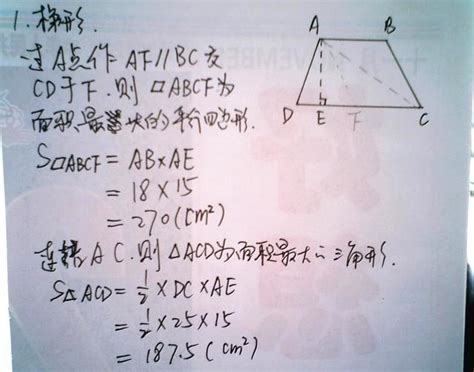 1. 梯形.
过A点作 AF//BC交
CD于F. 则 □ABCF为
面积最大的平行四边形.
S□ABCF = AB×AE
= 18×15
= 270(cm²)
连接AC. 则△ACD为面积最大的三角形.
S△ACD = 1/2 × DC × AE
= 1/2 × 25 × 15
= 187.5 (cm²)
A B
D E F C